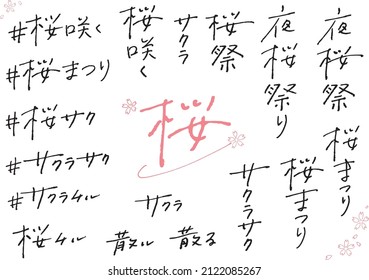 #桜咲く
#桜まつり
#桜サク
#サクラサク
#サクラチル
桜チル
桜咲く
サクラ
桜祭
夜桜祭り
夜桜祭
桜まつり
桜
サクラ
散ル
散る
サクラサク
桜まつり
shutterstock
IMAGE ID: 2122085267
www.shutterstock.com